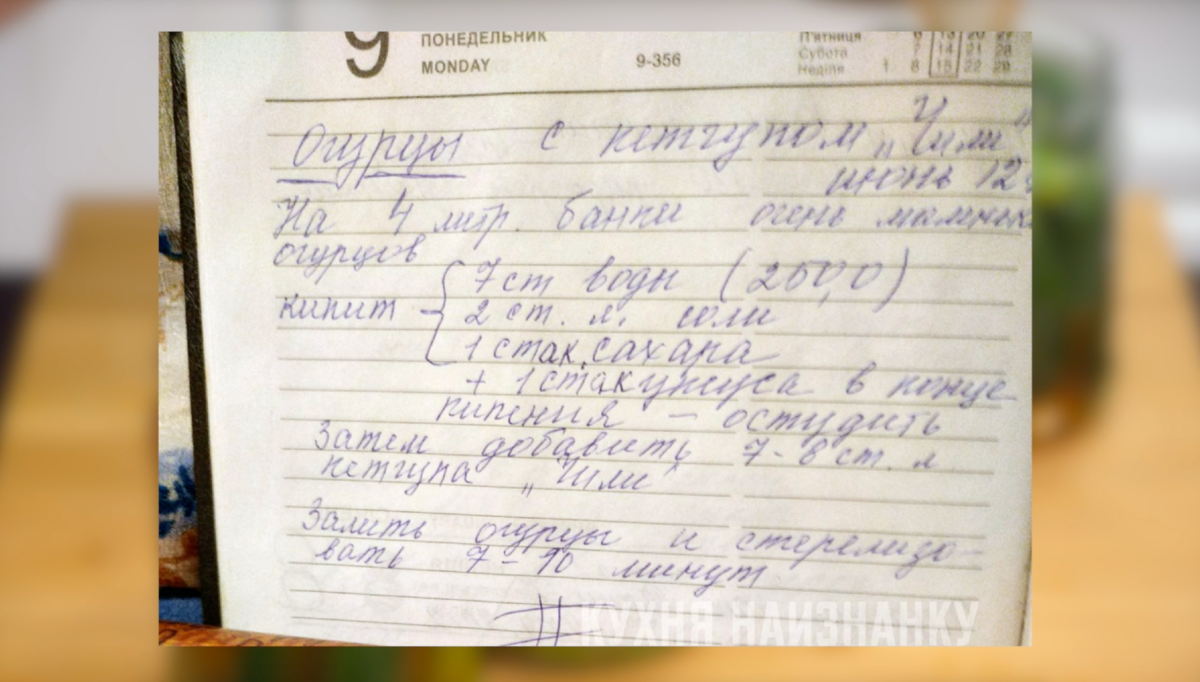 9 ПОНЕДЕЛЬНИК
MONDAY
9-356
П'ятниця 6 13 20 27
Субота 7 14 21 28
Неділя 1 8 15 22 29
Огурцы с кетчупом „Чили"
июнь 12
На 4 литр. банки очень маленьк
огурцов
кипит
7 ст воды (250,0)
2 ст. л. соли
1 стак. сахара
+ 1 стак уксуса в конце
кипения — остудить
Затем добавить 7-8 ст. л.
кетчупа „Чили"
Залить огурцы и стерелизо-
вать 7-10 минут
КУХНЯ НАИЗНАНКУ